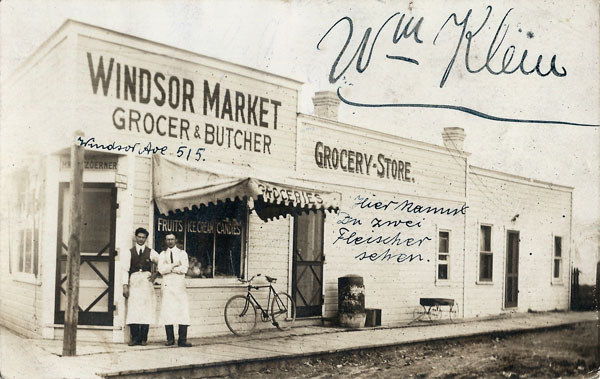 Wm Klein
WINDSOR MARKET
GROCER & BUTCHER
Windsor Ave. 515.
ZOERNER
GROCERY-STORE.
GROCERIES
FRUITS ICE CREAM CANDIES
Hier kannst
Du zwei
Fleischer
sehen.